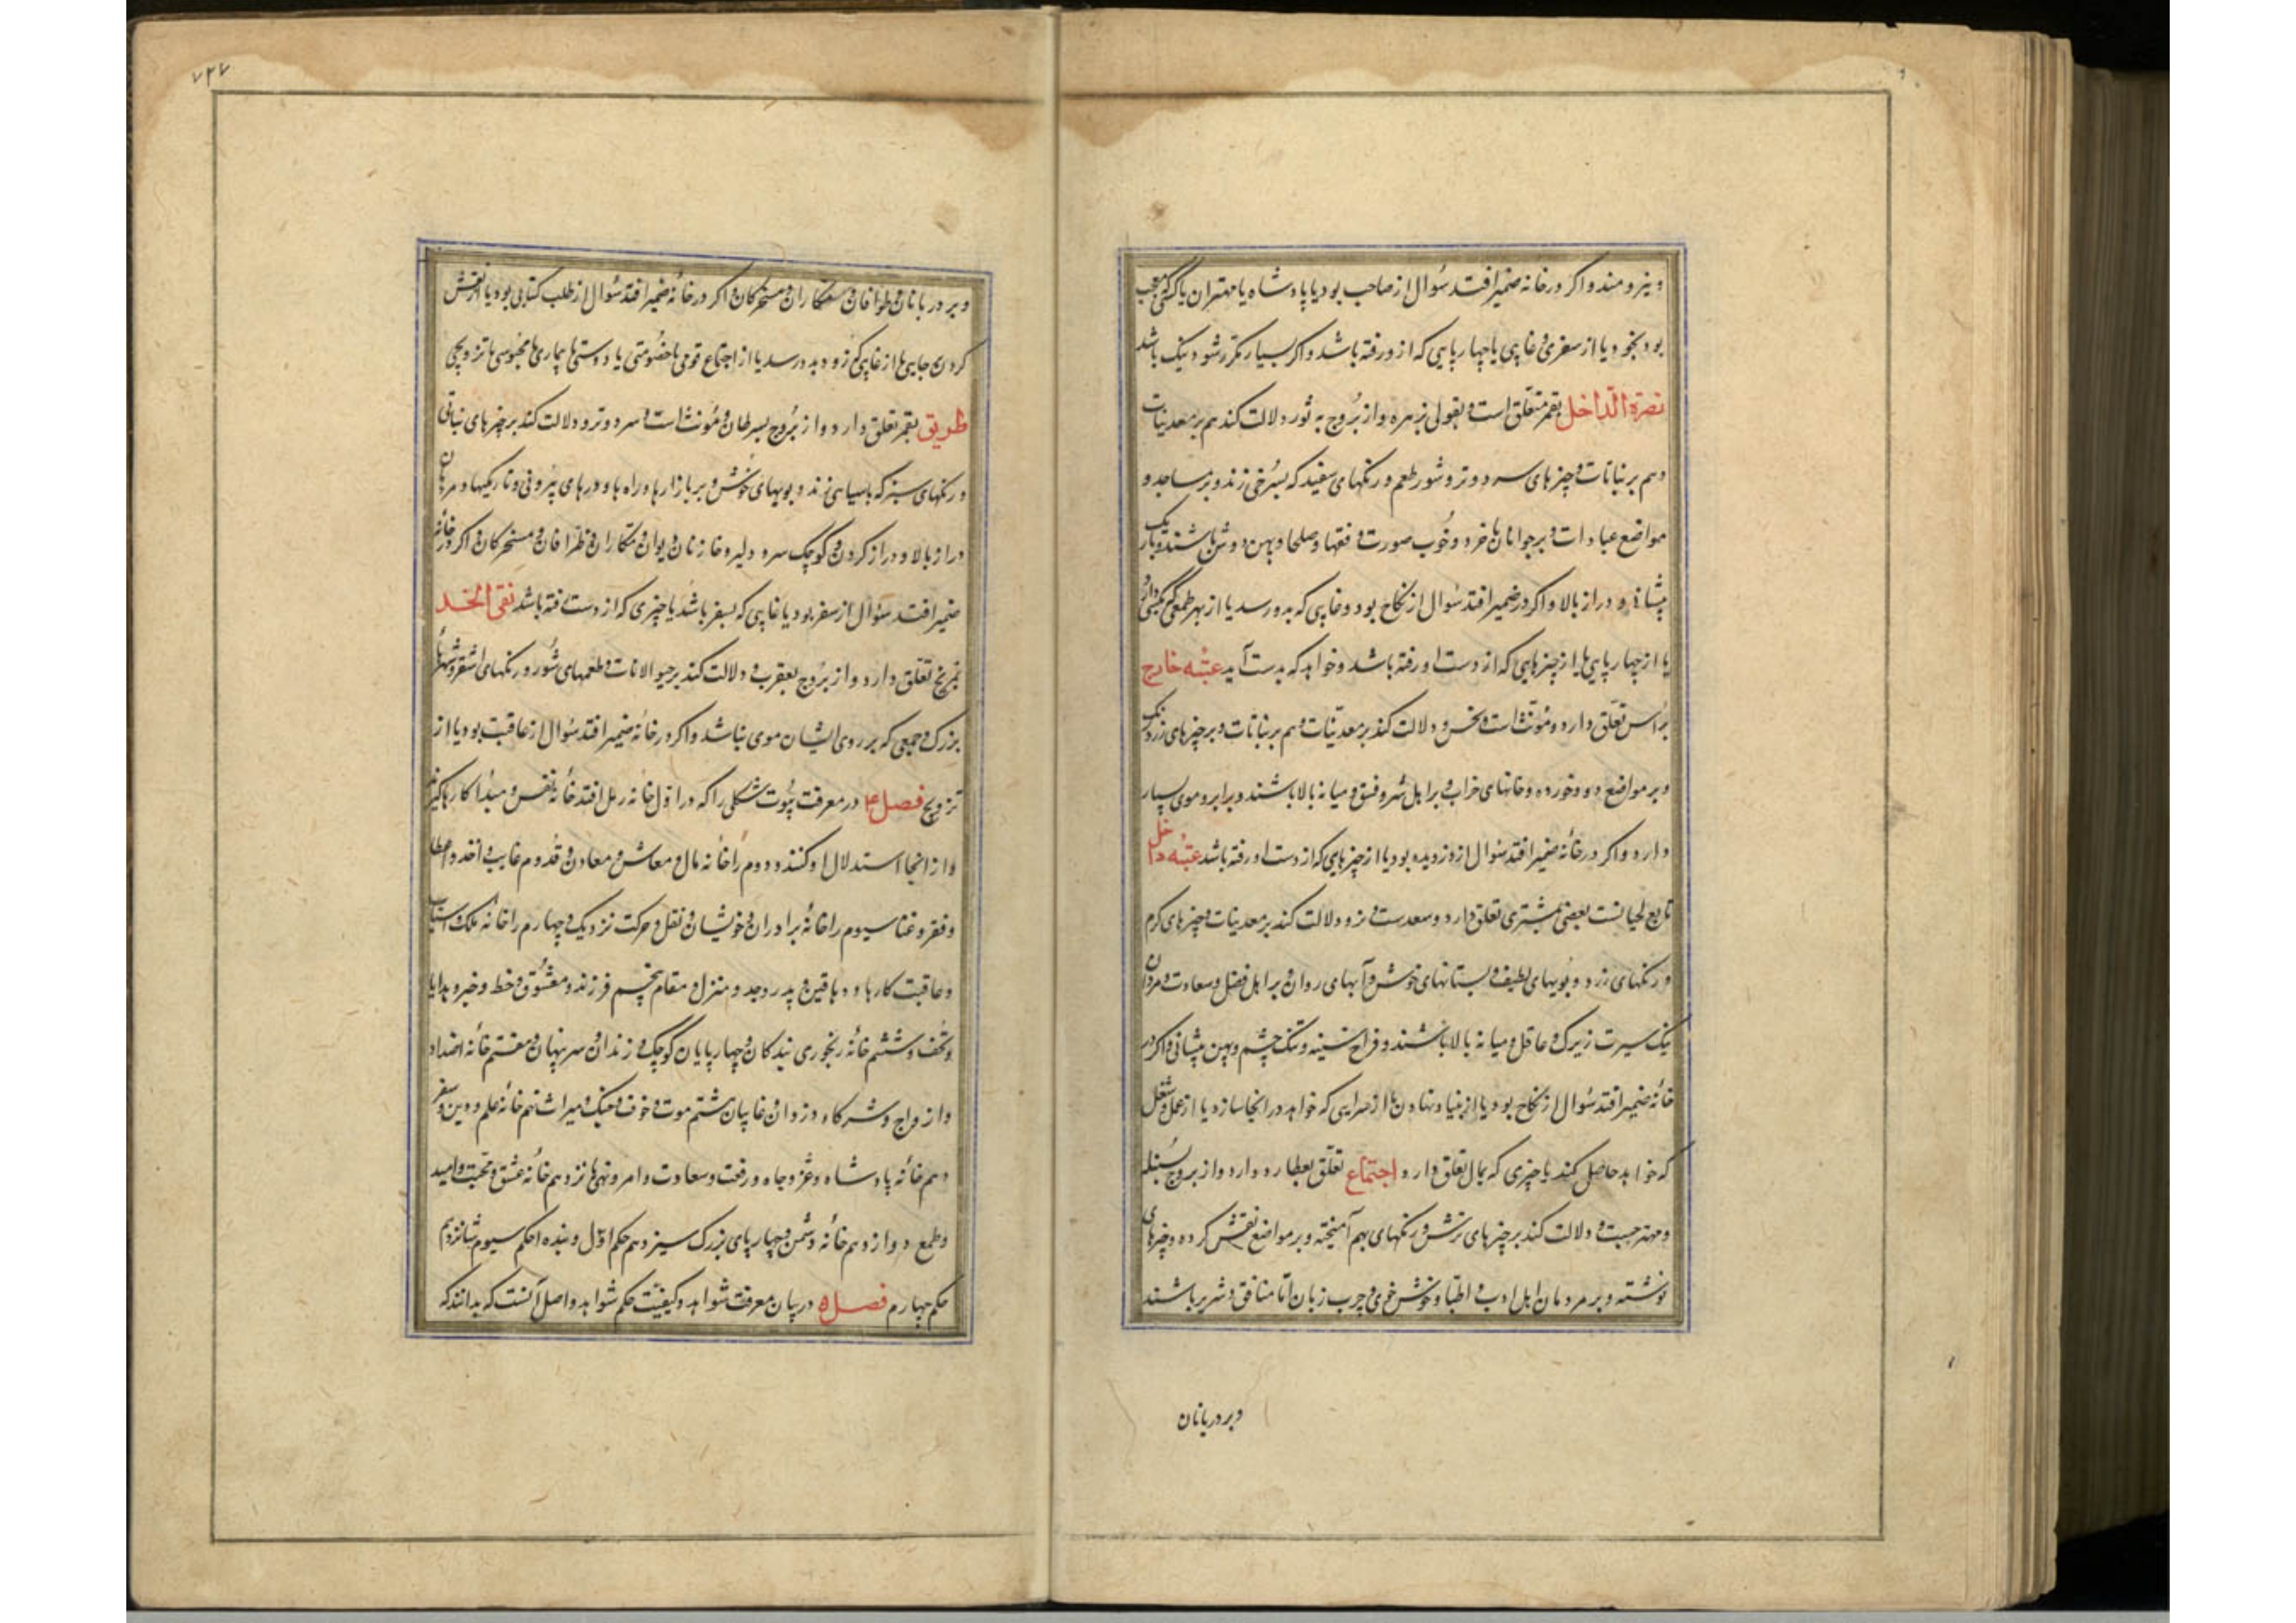 و نیرومند و اگر در خانه ضمیر افتد سؤال از صاحب بود یا پادشاه یا مهتران یا کسی
بود بخود یا از سفری و غایبی یا چهارپایی که ازو رفته باشد و اگر بسیار مکرر شود نیک باشد
نصرة الداخل بقمر متعلق است و بقولی بزهره و از بروج به ثور دلالت کند هم بر معدنیات
و هم بر نباتات و چیزهای سرد و تر و شور طعم و رنگهای سفید که بسرخی زند و بر مساجد و
مواضع عبادات و بر جوانان خرد و خوب صورت و فقها و صلحا و پهن دوش باشند و باریک
پیشانی و دراز بالا و اگر در ضمیر افتد سؤال از نکاح بود و غایبی که بدو رسد یا از بهر طمعی که
یا از چهارپایی یا از چیزهایی که از دست او رفته باشد و خواهد که بدست آید عتبه خارج
براس تعلق دارد و مؤنث است و نحس و دلالت کند بر معدنیات و هم بر نباتات و بر چیزهای زرد رنگ
و بر مواضع دود خورده و خانهای خراب و بر اهل شر و فسق و میانه بالا باشند و بر ابرو موی بسیار
دارد و اگر در خانه ضمیر افتد سؤال از دزدیده بود یا از چیزهایی که از دست او رفته باشد عتبه داخل
تابع لحیانست بعضی بمشتری تعلق دارد و سعدست و نر و دلالت کند بر معدنیات و چیزهای گرم
و رنگهای زرد و بویهای لطیف و بستانهای خوش و آبهای روان و بر اهل فضل و سعادت و مردان
نیک سیرت زیرک و عاقل و میانه بالا باشند و فراخ سینه و تنک چشم و پهن پیشانی و اگر در
خانه ضمیر افتد سؤال از نکاح بود یا از بنیاد نهادن یا از سرایی که خواهد در انجا سازد یا از عمل و شغل
که خواهد حاصل کند یا چیزی که بمال تعلق دارد اجتماع تعلق بعطارد دارد و از بروج بسنبله
و دلالت کند بر چیزهای ترش و رنگهای بهم آمیخته و بر مواضع نقش کرده و چیزهای
نوشته و بر مردمان اهل ادب و اطبا و خوش خوی و چرب زبان اما منافق و شریر باشند
و بر دربانان
۷۲۷
و بر دربانان و طوافان و مسخرکان و اگر در خانه ضمیر افتد سؤال از طلب کتابی بود یا از نقش
کردن جایی یا از غایبی که زود بدو رسد یا از اجتماع قومی یا خصومتی یا دوستی یا بیماری یا محبوسی یا تزویجی
طریق بقمر تعلق دارد و از بروج بسرطان و مؤنث است و سرد و تر و دلالت کند بر چیزهای نباتی
و رنگهای سبز که بسیاهی زند و بویهای خوش و بر بازارها و راه‌ها و درهای بیرونی و تاریکیها و مردمان
دراز بالا و دراز گردن و کوچک سر و دلیر و خازنان و مکاران و ظرافان و مسخرکان و اگر در خانه
ضمیر افتد سؤال از سفر بود یا غایبی که بسفر باشد یا چیزی که از دست رفته باشد نقی الخد
بمریخ تعلق دارد و از بروج بعقرب و دلالت کند بر حیوانات و طعمهای شور و رنگهای اشقر و شهرهای
بزرک و جمعی که بر روی ایشان موی نباشد و اگر در خانه ضمیر افتد سؤال از عاقبت بود یا از
تزویج فصل ۴ در معرفت بیوت شکلی را که در اول خانه رمل افتد خانه نفس و مبدأ کارها گیرند
و از انجا استدلال او کنند و دوم را خانه مال و معاش و معادن و قدوم غایب و اخذ و عطا
و فقر و غنا سیوم را خانه برادران و خویشان و نقل و حرکت نزدیک و چهارم را خانه ملک و اسباب
و عاقبت کارها و دهاقین و پدر و جد و منزل و مقام پنجم فرزند و معشوق و خط و خبر و هدایا
و تحف و ششم خانه رنجوری بندکان و چهارپایان کوچک و زندان و سر پنهان و هفتم خانه اضداد
و ازواج و شرکاء و دزدان و غایبان هشتم موت و خوف و جنگ و میراث نهم خانه علم و دین و سفر
دهم خانه پادشاه و عز و جاه و رفعت و سعادت و امر و نهی یازدهم خانه عشق و محبت و امید
و طمع دوازدهم خانه دشمن و چهارپای بزرک سیزدهم حکم اول و پانزدهم حکم سیوم شانزدهم
حکم چهارم فصل ۵ در بیان معرفت شواهد و کیفیت حکم شواهد و اصل آنست که بدانند که